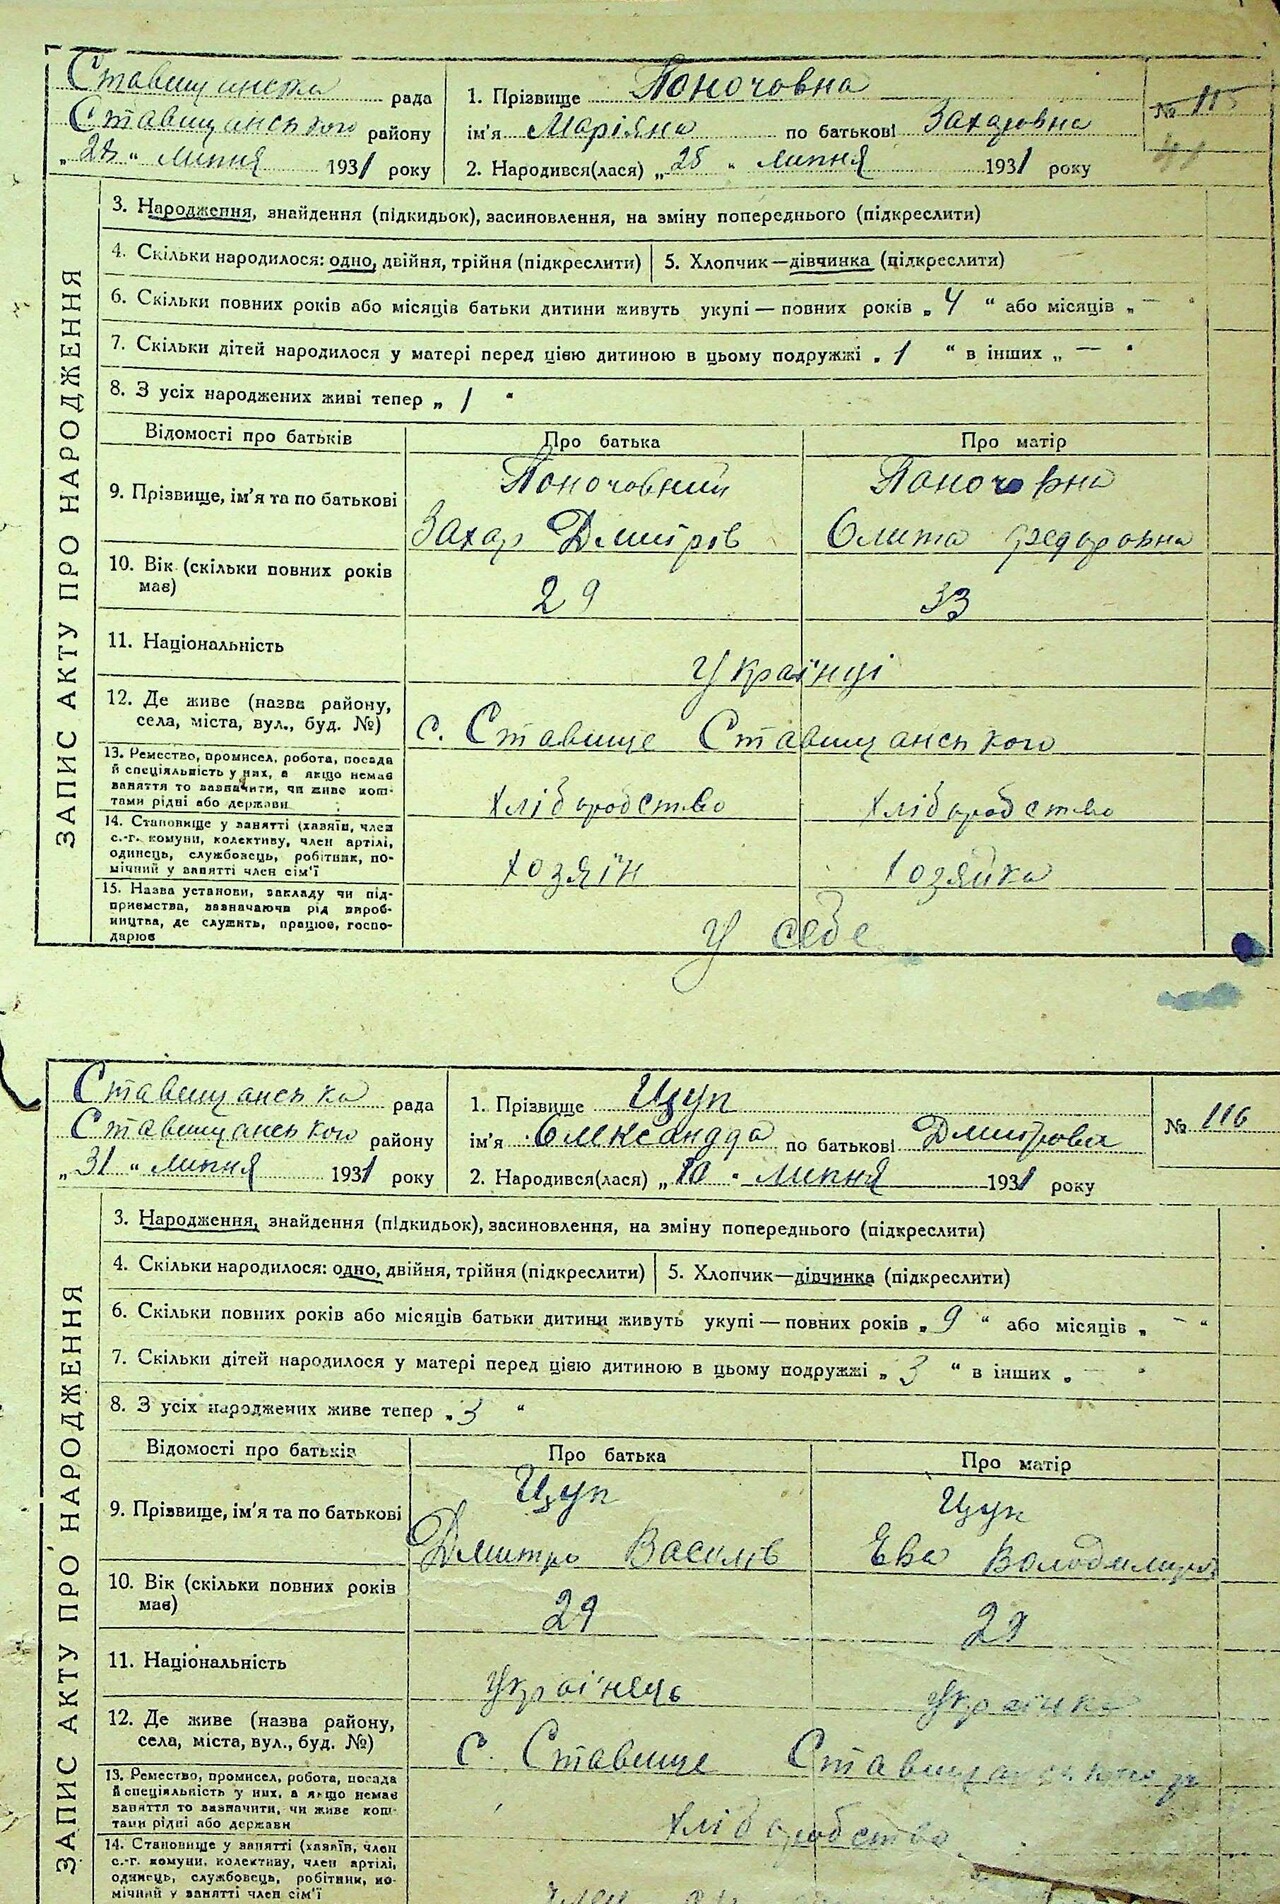 Ставищанська рада
Ставищанського району
„28“ липня 1931 року
1. Прізвище Поночовна
ім'я Маріяна по батькові Захаровна
2. Народився(лася) „25“ липня 1931 року
№ 115
ЗАПИС АКТУ ПРО НАРОДЖЕННЯ
3. Народження, знайдення (підкидьок), засиновлення, на зміну попереднього (підкреслити)
4. Скільки народилося: одно, двійня, трійня (підкреслити) 5. Хлопчик—дівчинка (підкреслити)
6. Скільки повних років або місяців батьки дитини живуть укупі — повних років „4“ або місяців „—“
7. Скільки дітей народилося у матері перед цією дитиною в цьому подружжі „1“ в інших „—“
8. З усіх народжених живі тепер „1“
Відомості про батьків Про батька Про матір
9. Прізвище, ім'я та по батькові Поночовний Поночовна
Захар Дмитрів Олита Федоровна
10. Вік (скільки повних років має) 29 33
11. Національність Українці
12. Де живе (назва району, села, міста, вул., буд. №) с. Ставище Ставищанського
13. Ремество, промисел, робота, посада
й спеціяльність у них, а якщо немає
заняття то зазначити, чи живе кош-
тами рідні або держави хліборобство хліборобство
14. Становище у занятті (хазяїн, член
с.-г. комуни, колективу, член артілі,
одинець, службовець, робітник, по-
мічний у занятті член сім'ї хозяїн хозяйка
15. Назва установи, закладу чи під-
приємства, зазначаючи рід вироб-
ництва, де служить, працює, госпо-
дарює у себе
Ставищанська рада
Ставищанського району
„31“ липня 1931 року
1. Прізвище Цуп
ім'я Олександра по батькові Дмитровна
2. Народився(лася) „10“ липня 1931 року
№ 116
ЗАПИС АКТУ ПРО НАРОДЖЕННЯ
3. Народження, знайдення (підкидьок), засиновлення, на зміну попереднього (підкреслити)
4. Скільки народилося: одно, двійня, трійня (підкреслити) 5. Хлопчик—дівчинка (підкреслити)
6. Скільки повних років або місяців батьки дитини живуть укупі — повних років „9“ або місяців „—“
7. Скільки дітей народилося у матері перед цією дитиною в цьому подружжі „3“ в інших „
8. З усіх народжених живе тепер „3“
Відомості про батьків Про батька Про матір
9. Прізвище, ім'я та по батькові Цуп Цуп
Дмитро Василів Ева Володимиров
10. Вік (скільки повних років має) 29 29
11. Національність Українець українка
12. Де живе (назва району, села, міста, вул., буд. №) с. Ставище Ставищанського р
13. Ремество, промисел, робота, посада
й спеціяльність у них, а якщо немає
заняття то вазначити, чи живе кош-
тами рідні або держави хліборобство
14. Становище у занятті (хазяїн, член
с.-г. комуни, колективу, член артілі,
одинець, службовець, робітник, по-
мічний у занятті член сім'ї член